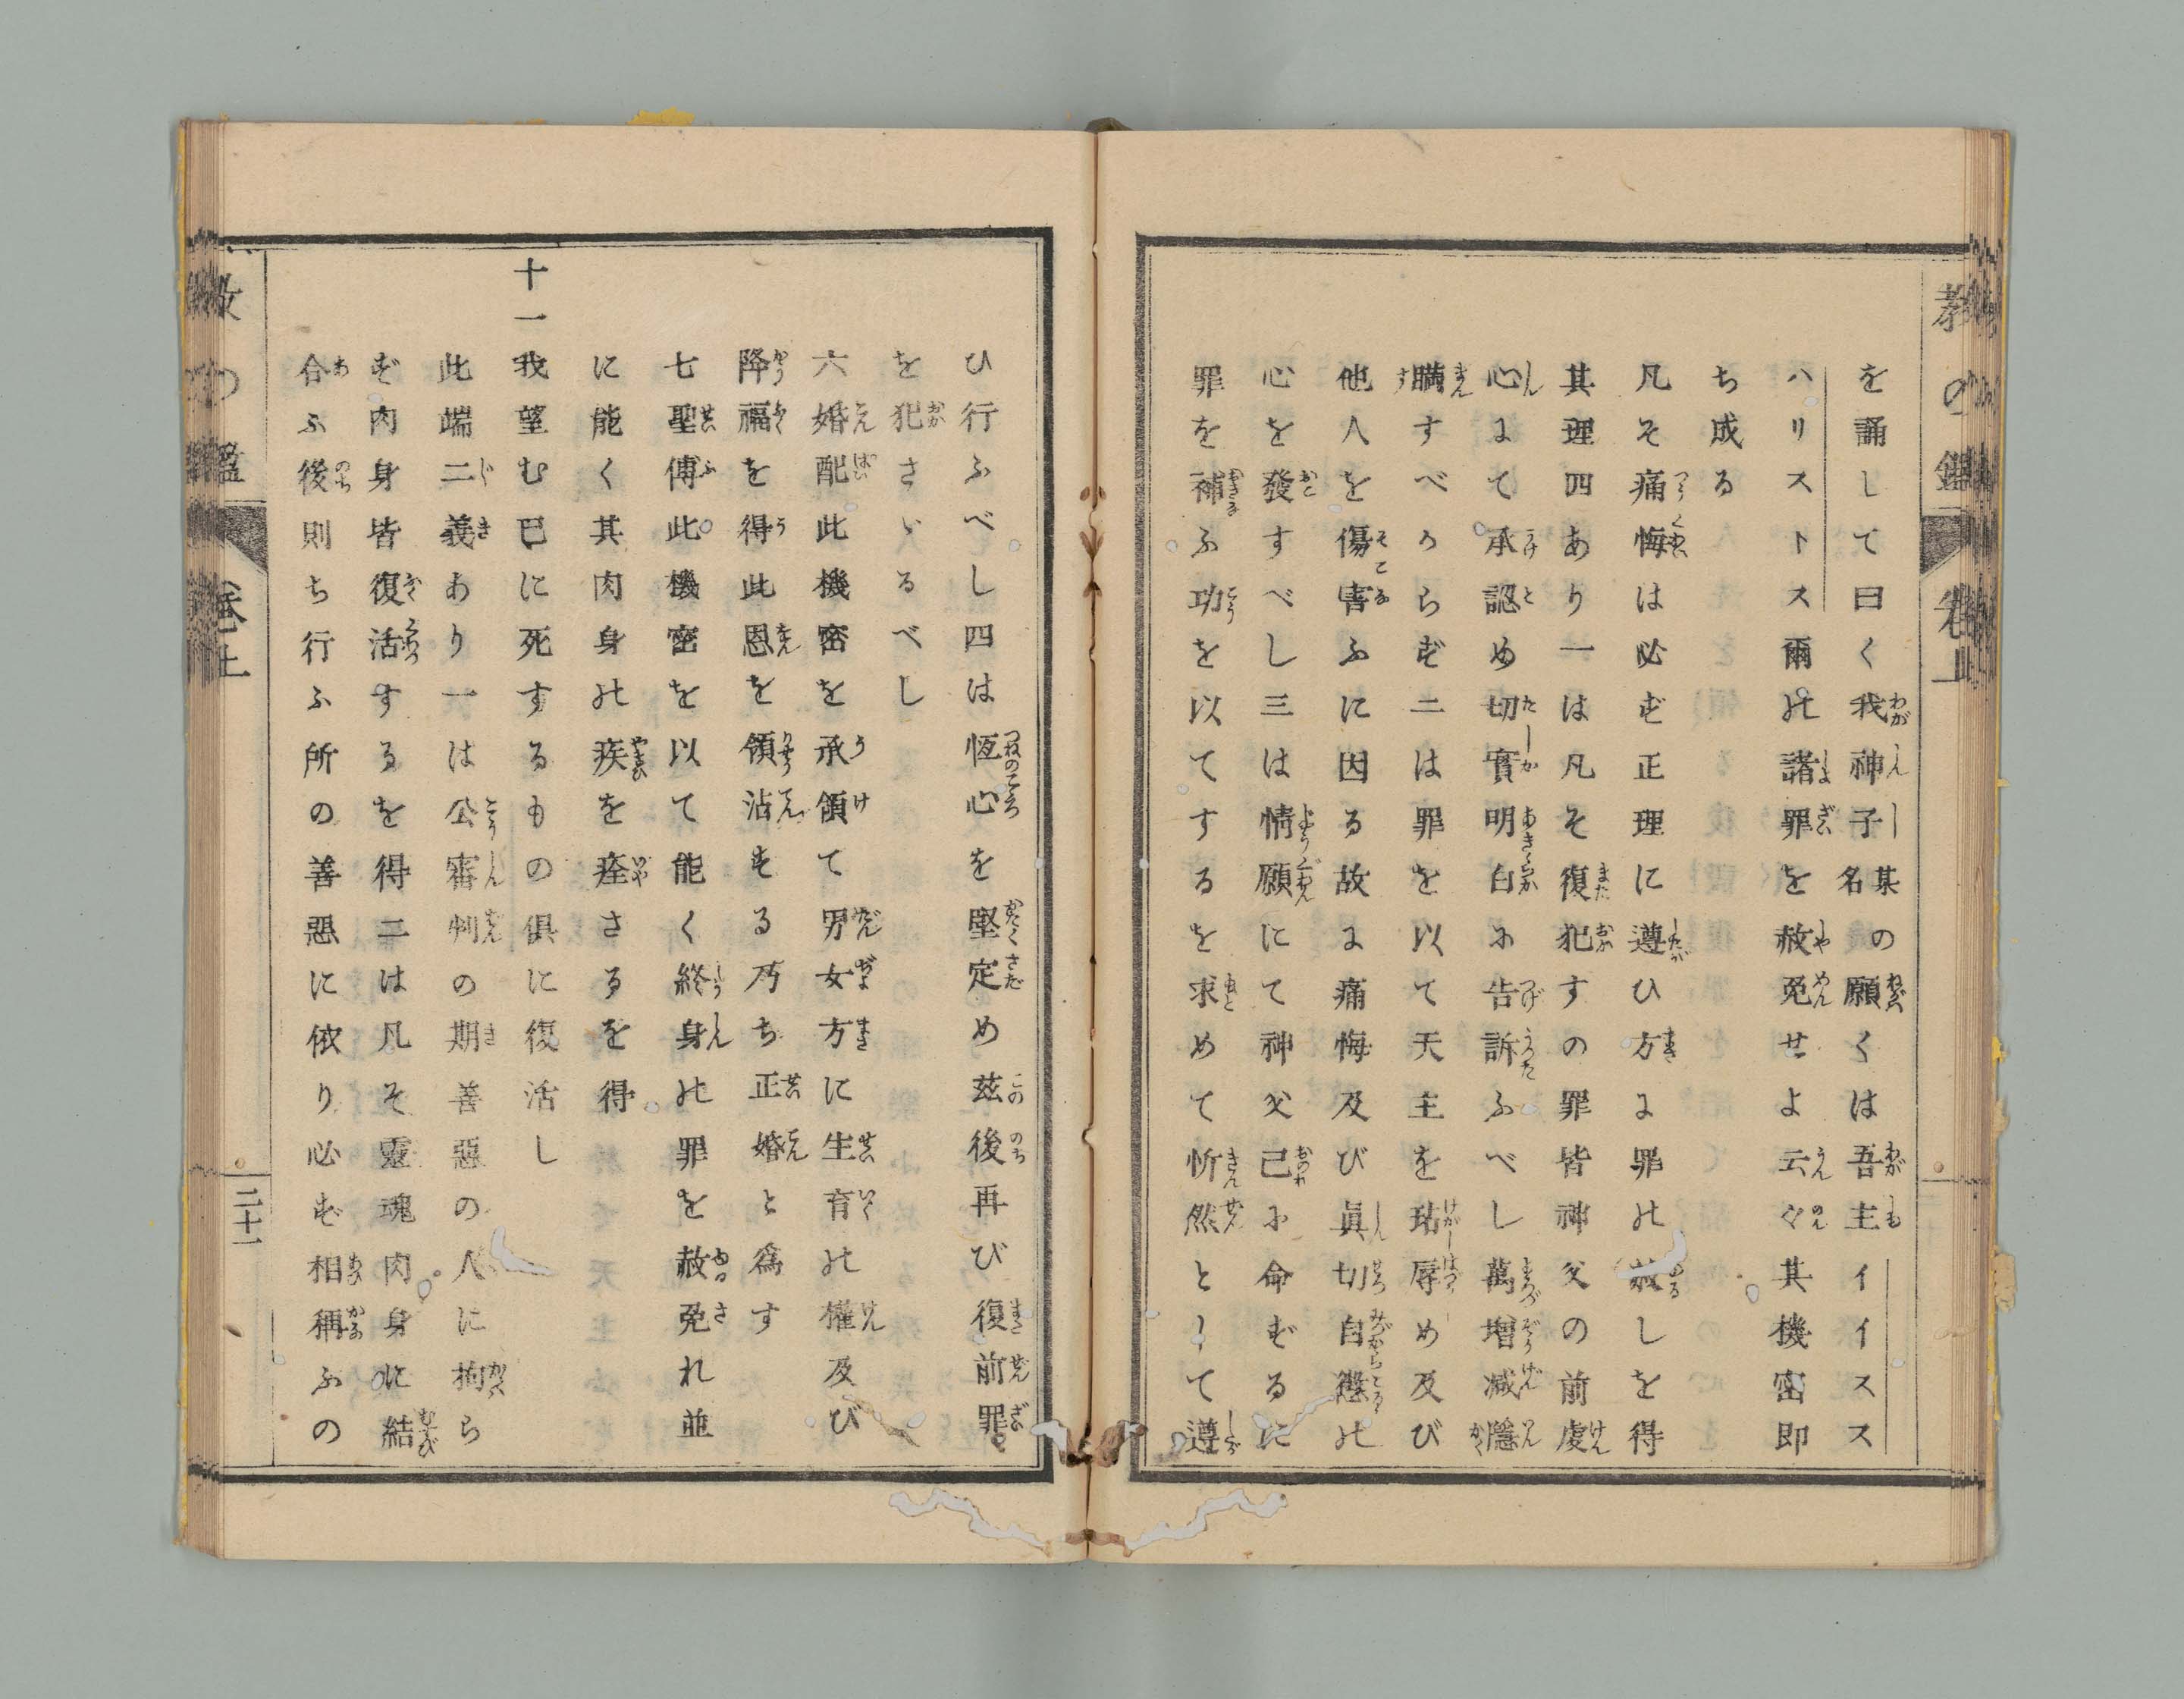 教の鑑 卷上
を誦して曰く我神子某名の願くは吾主イイスス
ハリストス爾の諸罪を赦免せよ云々其機密即
ち成る
凡そ痛悔は必ず正理に遵ひ方に罪の赦しを得
其理四あり一は凡そ復犯すの罪皆神父の前虔
心にて承認め切實明白に告訴ふべし萬増減隱
瞞すべからず二は罪を以て天主を玷辱め及び
他人を傷害ふに因る故に痛悔及び眞切自懲の
心を發すべし三は情願にて神父己に命ずるに
罪を補ふ功を以てするを求めて忻然として遵
ひ行ふべし四は恆心を堅定め玆後再び復前罪
を犯さゞるべし
六婚配此機密を承領て男女方に生育の權及び
降福を得此恩を領沾する乃ち正婚と爲す
七聖傅此機密を以て能く終身の罪を赦免れ並
に能く其肉身の疾を痊さるを得
十一我望む已に死するもの俱に復活し
此端二義あり一は公審判の期善惡の人に拘ら
ず肉身皆復活するを得二は凡そ靈魂肉身に結
合ふ後則ち行ふ所の善惡に依り必ず相稱ふの
教の鑑 卷上 二十一